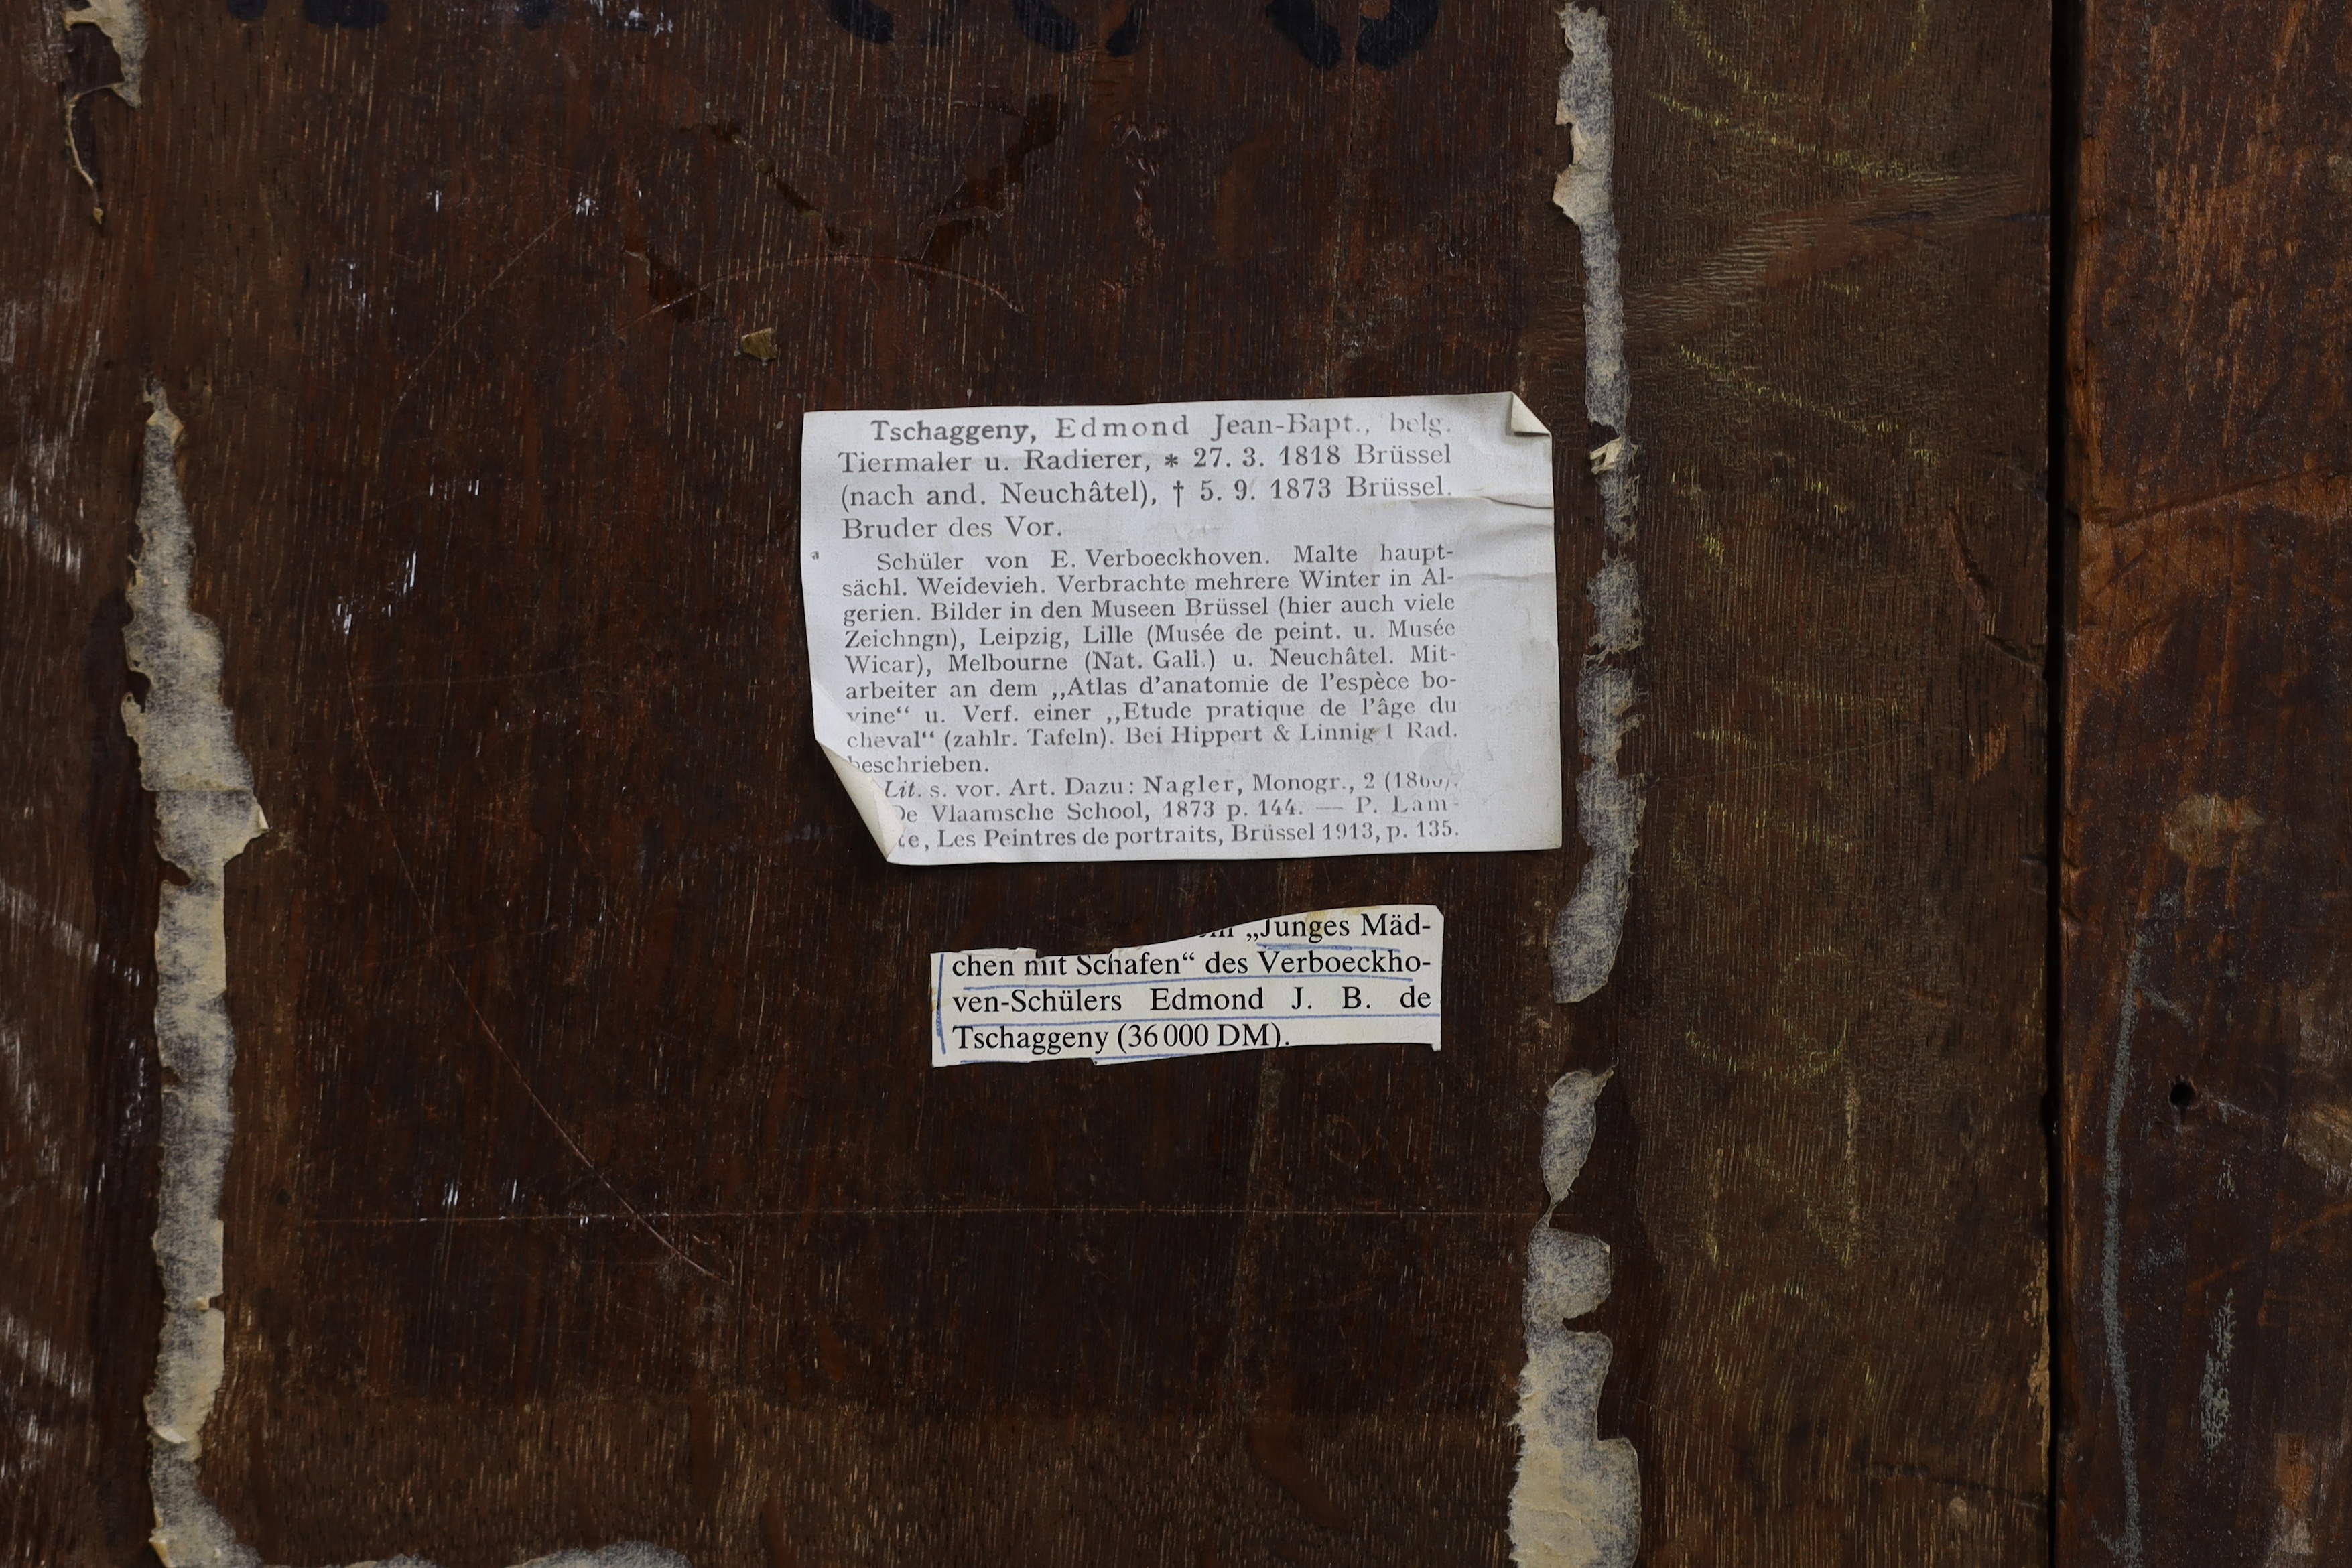 Tschaggeny, Edmond Jean-Bapt., belg.
Tiermaler u. Radierer, * 27. 3. 1818 Brüssel
(nach and. Neuchâtel), † 5. 9. 1873 Brüssel.
Bruder des Vor.
Schüler von E. Verboeckhoven. Malte haupt-
sächl. Weidevieh. Verbrachte mehrere Winter in Al-
gerien. Bilder in den Museen Brüssel (hier auch viele
Zeichngn), Leipzig, Lille (Musée de peint. u. Musée
Wicar), Melbourne (Nat. Gall.) u. Neuchâtel. Mit-
arbeiter an dem „Atlas d'anatomie de l'espèce bo-
vine“ u. Verf. einer „Etude pratique de l'âge du
cheval“ (zahlr. Tafeln). Bei Hippert & Linnig 1 Rad.
beschrieben.
Lit. s. vor. Art. Dazu: Nagler, Monogr., 2
De Vlaamsche School, 1873 p. 144. — P. Lam-
te, Les Peintres de portraits, Brüssel 1913, p. 135.
„Junges Mäd-
chen mit Schafen“ des Verboeckho-
ven-Schülers Edmond J. B. de
Tschaggeny (36 000 DM).